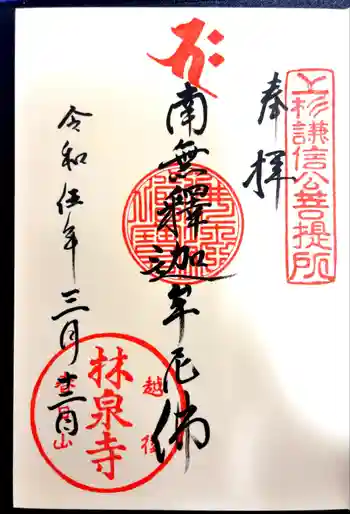 上杉謙信公菩提所
奉拝
南無釋迦牟尼佛
令和伍年三月十二日
越後
林泉寺
春日山